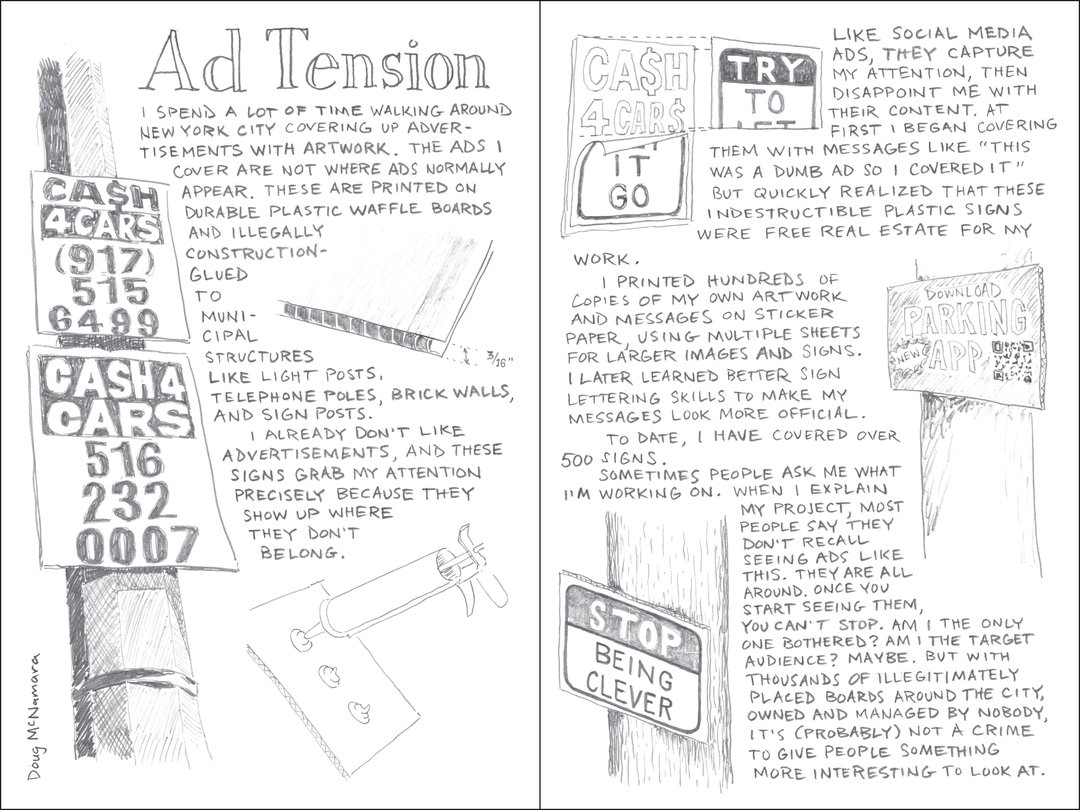 Ad Tension
I SPEND A LOT OF TIME WALKING AROUND
NEW YORK CITY COVERING UP ADVER-
TISEMENTS WITH ARTWORK. THE ADS I
COVER ARE NOT WHERE ADS NORMALLY
APPEAR. THESE ARE PRINTED ON
DURABLE PLASTIC WAFFLE BOARDS
AND ILLEGALLY
CONSTRUCTION-
GLUED
TO
MUNI-
CIPAL
STRUCTURES
LIKE LIGHT POSTS,
TELEPHONE POLES, BRICK WALLS,
AND SIGN POSTS.
I ALREADY DON'T LIKE
ADVERTISEMENTS, AND THESE
SIGNS GRAB MY ATTENTION
PRECISELY BECAUSE THEY
SHOW UP WHERE
THEY DON'T
BELONG.
CA$H
4 CARS
(917)
515
6499
CA$H 4
CARS
516
232
0007
3/16"
Doug McNamara
CA$H
4 CAR$
IT
GO
TRY
TO
LET
LIKE SOCIAL MEDIA
ADS, THEY CAPTURE
MY ATTENTION, THEN
DISAPPOINT ME WITH
THEIR CONTENT. AT
FIRST I BEGAN COVERING
THEM WITH MESSAGES LIKE "THIS
WAS A DUMB AD SO I COVERED IT"
BUT QUICKLY REALIZED THAT THESE
INDESTRUCTIBLE PLASTIC SIGNS
WERE FREE REAL ESTATE FOR MY
WORK.
I PRINTED HUNDREDS OF
COPIES OF MY OWN ARTWORK
AND MESSAGES ON STICKER
PAPER, USING MULTIPLE SHEETS
FOR LARGER IMAGES AND SIGNS.
I LATER LEARNED BETTER SIGN
LETTERING SKILLS TO MAKE MY
MESSAGES LOOK MORE OFFICIAL.
TO DATE, I HAVE COVERED OVER
500 SIGNS.
SOMETIMES PEOPLE ASK ME WHAT
I'M WORKING ON. WHEN I EXPLAIN
MY PROJECT, MOST
PEOPLE SAY THEY
DON'T RECALL
SEEING ADS LIKE
THIS. THEY ARE ALL
AROUND. ONCE YOU
START SEEING THEM,
YOU CAN'T STOP. AM I THE ONLY
ONE BOTHERED? AM I THE TARGET
AUDIENCE? MAYBE. BUT WITH
THOUSANDS OF ILLEGITIMATELY
PLACED BOARDS AROUND THE CITY,
OWNED AND MANAGED BY NOBODY,
IT'S (PROBABLY) NOT A CRIME
TO GIVE PEOPLE SOMETHING
MORE INTERESTING TO LOOK AT.
DOWNLOAD
PARKING
NEW
APP
STOP
BEING
CLEVER